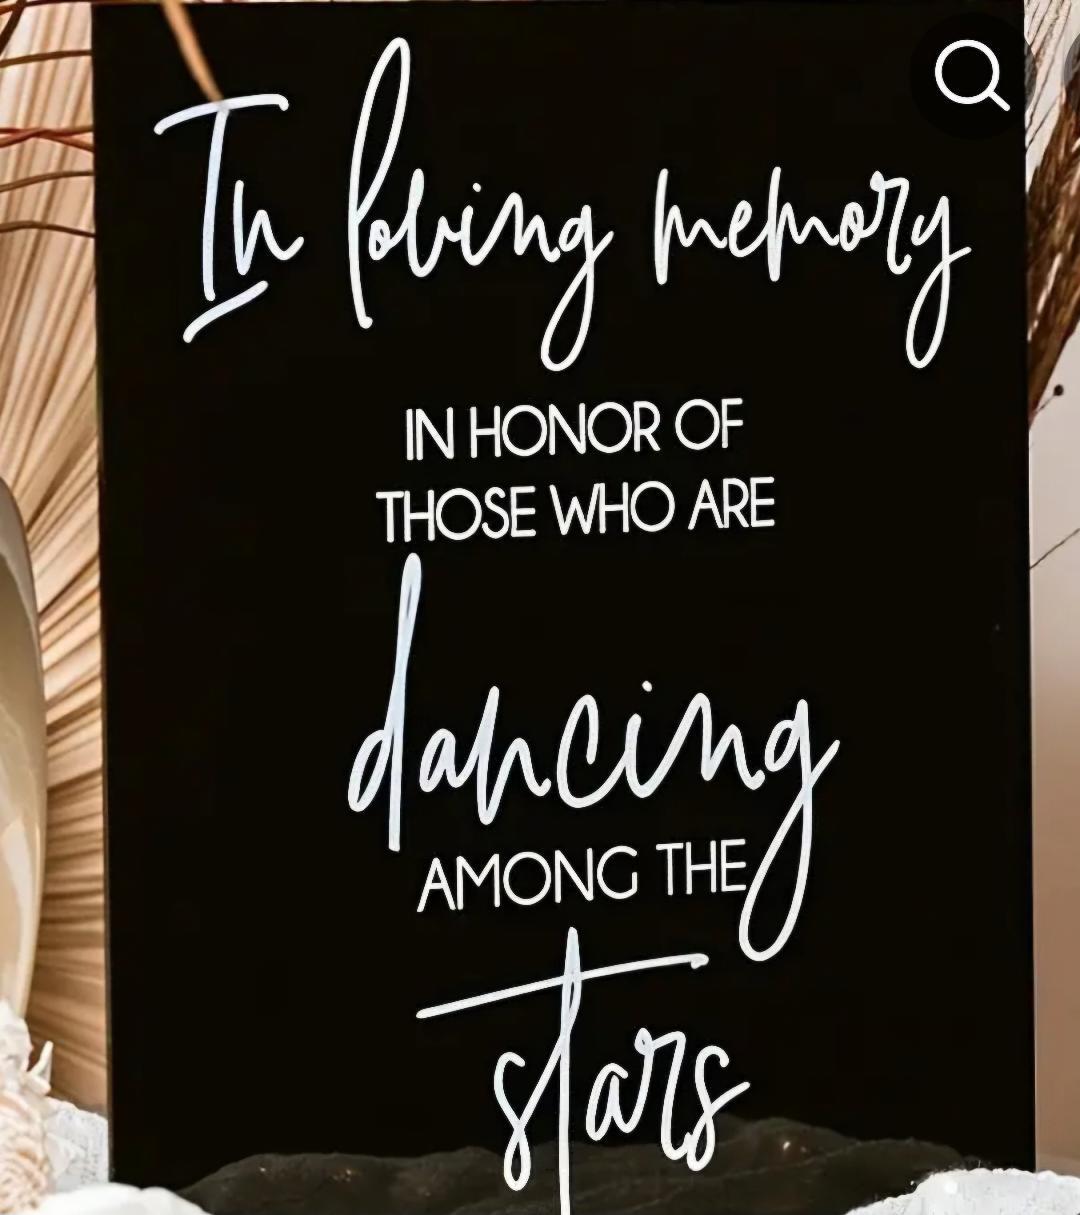 In loving memory
IN HONOR OF
THOSE WHO ARE
dancing
AMONG THE
stars